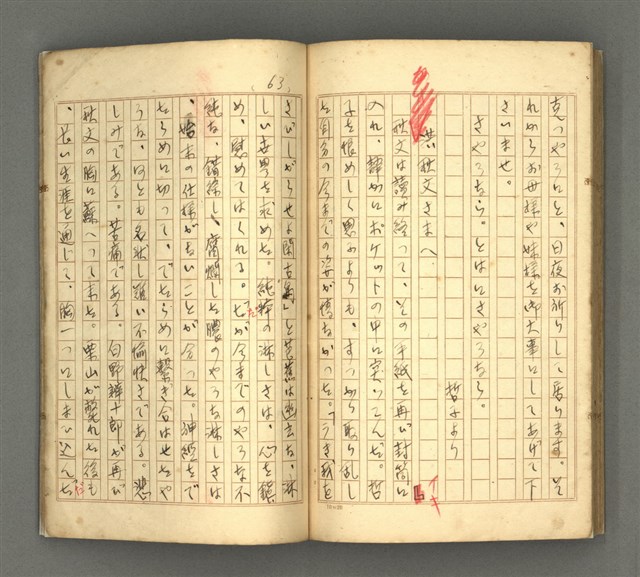 克つやうにと、日夜お祈りして居ります。そ
れからお母様や妹様を御大事にしてあげて下
さいませ。
さやうなら。とはにさやうなら。
哲子より
洪秋文さまへ
秋文は読み終つて、その手紙を再び封筒に
入れ、静かにポケットの中に突つこんだ。哲
子を恨めしく思ふよりも、すつかり取り乱し
た自分の今までの姿が情なかつた。「うき我を
イキ
63
さびしがらせよ閑古鳥」と芭蕉は幽玄な、淋
しい世界を求めた。純粋の淋しさは、心を鎮
め、慰めてはくれる。だが今までのやうな不
純な、錯綜し、腐爛した膿のやうな淋しさは
、始末の仕様がないことが分つた。神経をで
たらめに切つて、でたらめに繋ぎ合はせたや
うな、何とも名状し難い不愉快さである。悲
しみである。苦痛である。白野辨十郎が再び
秋文の胸に蘇へつて来た。栗山が斃れた後も
、長い生涯を通じて、胸一つにしまい込んだ
10×20